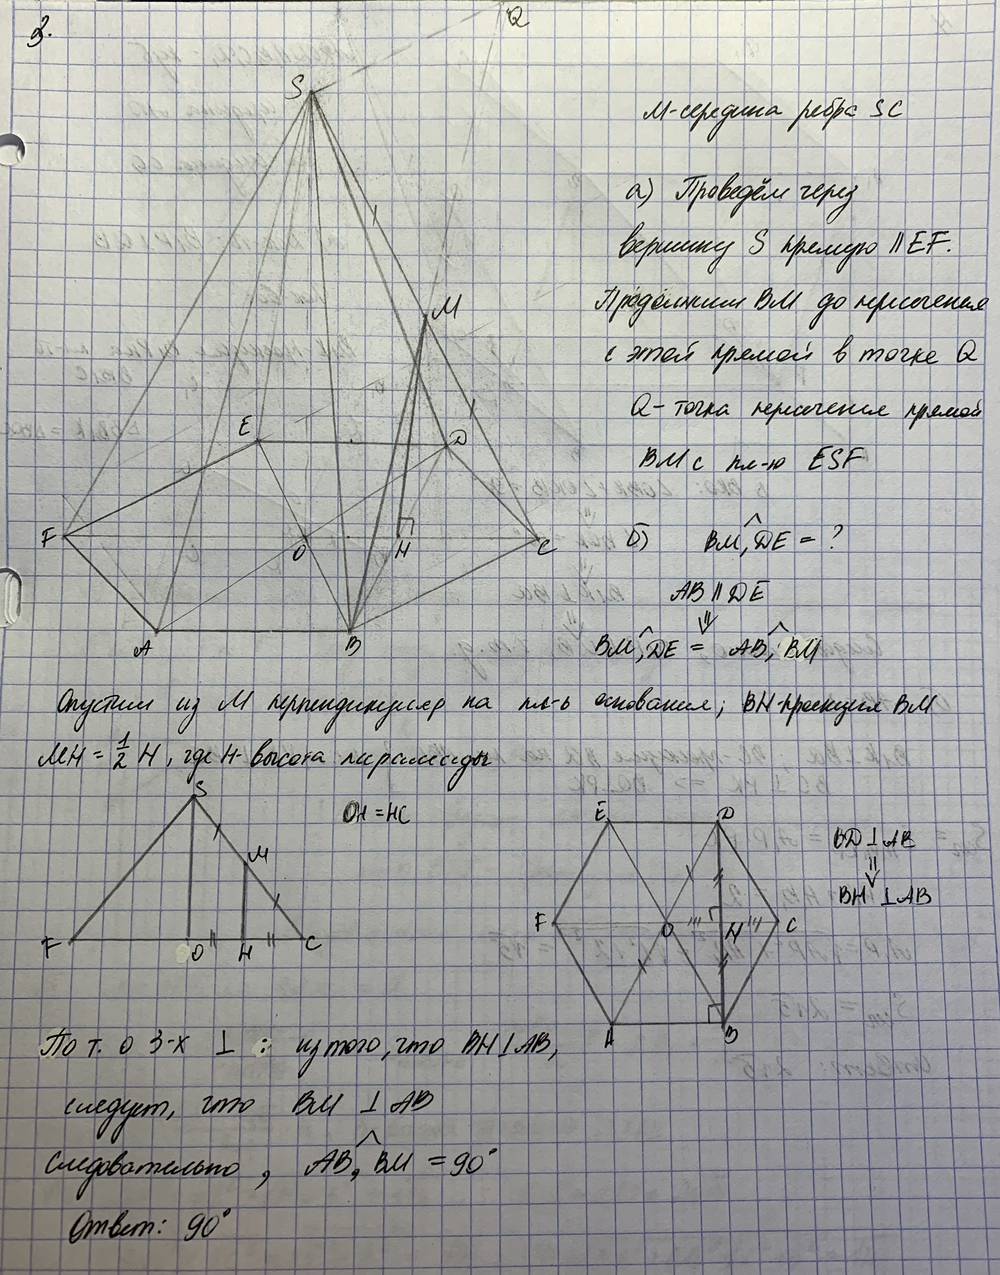 3.
Q
S
M-середина ребра SC
а) Проведём через
вершину S прямую || EF.
Продолжим BM до пересечения
с этой прямой в точке Q
Q - точка пересечения прямой
BM с пл-ю ESF
M
E
D
F
O
H
C
A
B
б) BM,^DE = ?
AB || DE
⇓
BM,^DE = AB,^BM
Опустим из M перпендикуляр на пл-ь основания; BH-проекция BM
MH = 1/2 H, где H-высота пирамиды
OH = HC
S
M
F
O
H
C
E
D
F
O
H
C
A
B
BD ⊥ AB
⇓
BH ⊥ AB
По т. о 3-х ⊥ : из того, что BH ⊥ AB,
следует, что BM ⊥ AB
следовательно, AB,^BM = 90°
Ответ: 90°